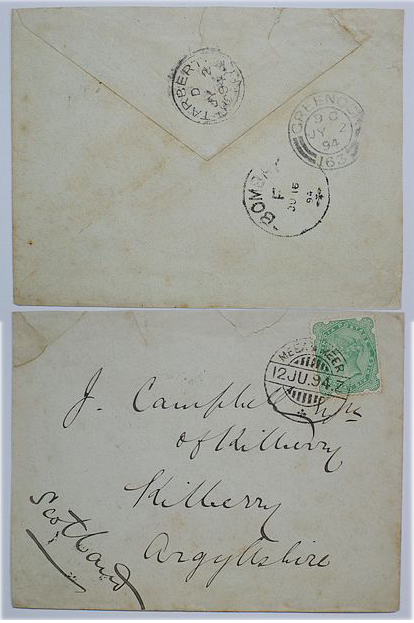 TARBERT
D
JY 2
94
GREENOCK
9 C
JY 2
94
163
BOMBAY
F
JU 16
94
MEEAN MEER
12 JU. 94. 7
J. Campbell
of Kilberry
Kilberry
Argyllshire
Scotland